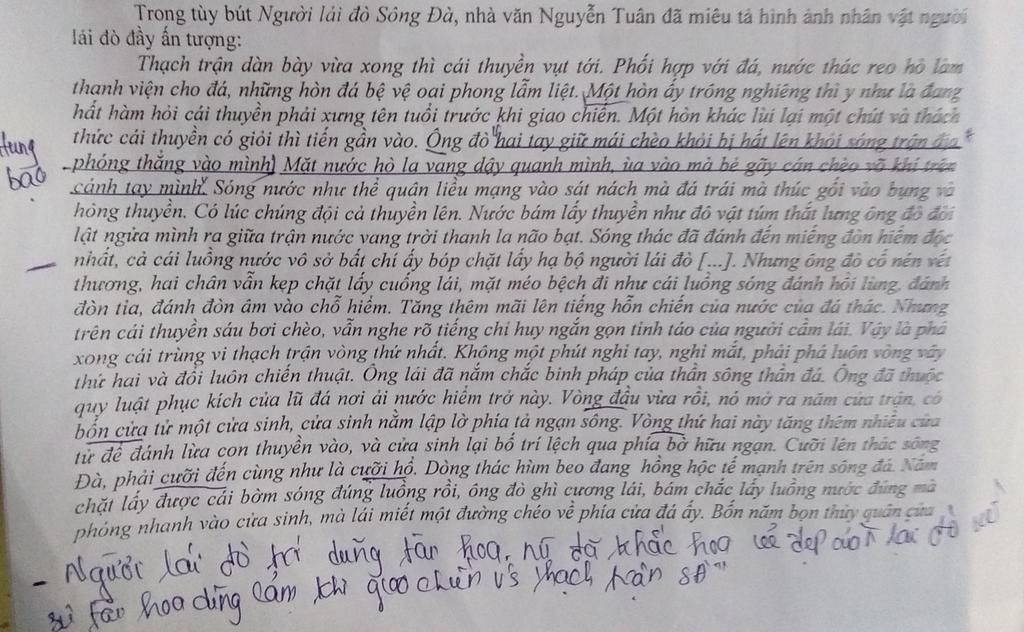 Trong tùy bút Người lái đò Sông Đà, nhà văn Nguyễn Tuân đã miêu tả hình ảnh nhân vật người
lái đò đầy ấn tượng:
Thạch trận dàn bày vừa xong thì cái thuyền vụt tới. Phối hợp với đá, nước thác reo hò làm
thanh viện cho đá, những hòn đá bệ vệ oai phong lẫm liệt. Một hòn ấy trông nghiêng thì y như là đang
hất hàm hỏi cái thuyền phải xưng tên tuổi trước khi giao chiến. Một hòn khác lùi lại một chút và thách
thức cái thuyền có giỏi thì tiến gần vào. Ông đò hai tay giữ mái chèo khỏi bị hất lên khỏi sóng trận địa
Hung bạo
phóng thẳng vào mình. Mặt nước hò la vang dậy quanh mình, ùa vào mà bẻ gãy cán chèo võ khí trên
cánh tay mình. Sóng nước như thể quân liều mạng vào sát nách mà đá trái mà thúc gối vào bụng và
hông thuyền. Có lúc chúng đội cả thuyền lên. Nước bám lấy thuyền như đô vật túm thắt lưng ông đò đòi
lật ngửa mình ra giữa trận nước vang trời thanh la não bạt. Sóng thác đã đánh đến miếng đòn hiểm độc
nhất, cả cái luồng nước vô sở bất chí ấy bóp chặt lấy hạ bộ người lái đò [...]. Nhưng ông đò cố nén vết
thương, hai chân vẫn kẹp chặt lấy cuống lái, mặt méo bệch đi như cái luồng sóng đánh hồi lùng, đánh
đòn tỉa, đánh đòn âm vào chỗ hiểm. Tăng thêm mãi lên tiếng hỗn chiến của nước của đá thác. Nhưng
trên cái thuyền sáu bơi chèo, vẫn nghe rõ tiếng chỉ huy ngắn gọn tỉnh táo của người cầm lái. Vậy là phá
xong cái trùng vi thạch trận vòng thứ nhất. Không một phút nghỉ tay, nghỉ mắt, phải phá luôn vòng vây
thứ hai và đổi luôn chiến thuật. Ông lái đã nắm chắc binh pháp của thần sông thần đá. Ông đã thuộc
quy luật phục kích của lũ đá nơi ải nước hiểm trở này. Vòng đầu vừa rồi, nó mở ra năm cửa trận, có
bốn cửa tử một cửa sinh, cửa sinh nằm lập lờ phía tả ngạn sông. Vòng thứ hai này tăng thêm nhiều cửa
tử để đánh lừa con thuyền vào, và cửa sinh lại bố trí lệch qua phía bờ hữu ngạn. Cưỡi lên thác sông
Đà, phải cưỡi đến cùng như là cưỡi hổ. Dòng thác hùm beo đang hồng hộc tế mạnh trên sông đá. Nắm
chặt lấy được cái bờm sóng đúng luồng rồi, ông đò ghì cương lái, bám chắc lấy luồng nước đúng mà
phóng nhanh vào cửa sinh, mà lái miết một đường chéo về phía cửa đá ấy. Bốn năm bọn thủy quân cửa
- Người lái đò trí dũng tài hoa, nv đã khắc họa vẻ đẹp của lái đò
sự tài hoa dũng cảm khi giao chiến vs thạch trận SĐ